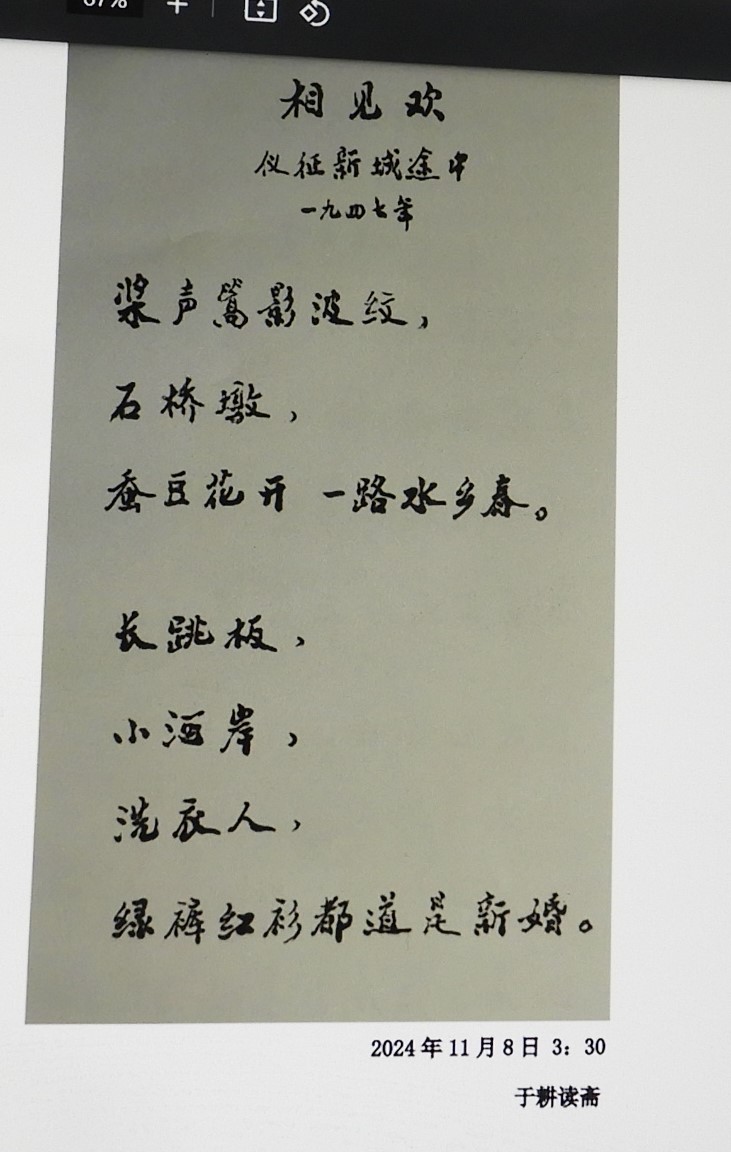 67%
相见欢
仪征新城途中
一九四七年
桨声篙影波纹，
石桥墩，
蚕豆花开 一路水乡春。
长跳板，
小河岸，
洗衣人，
绿裤红衫都道是新婚。
2024年11月8日 3：30
于耕读斋